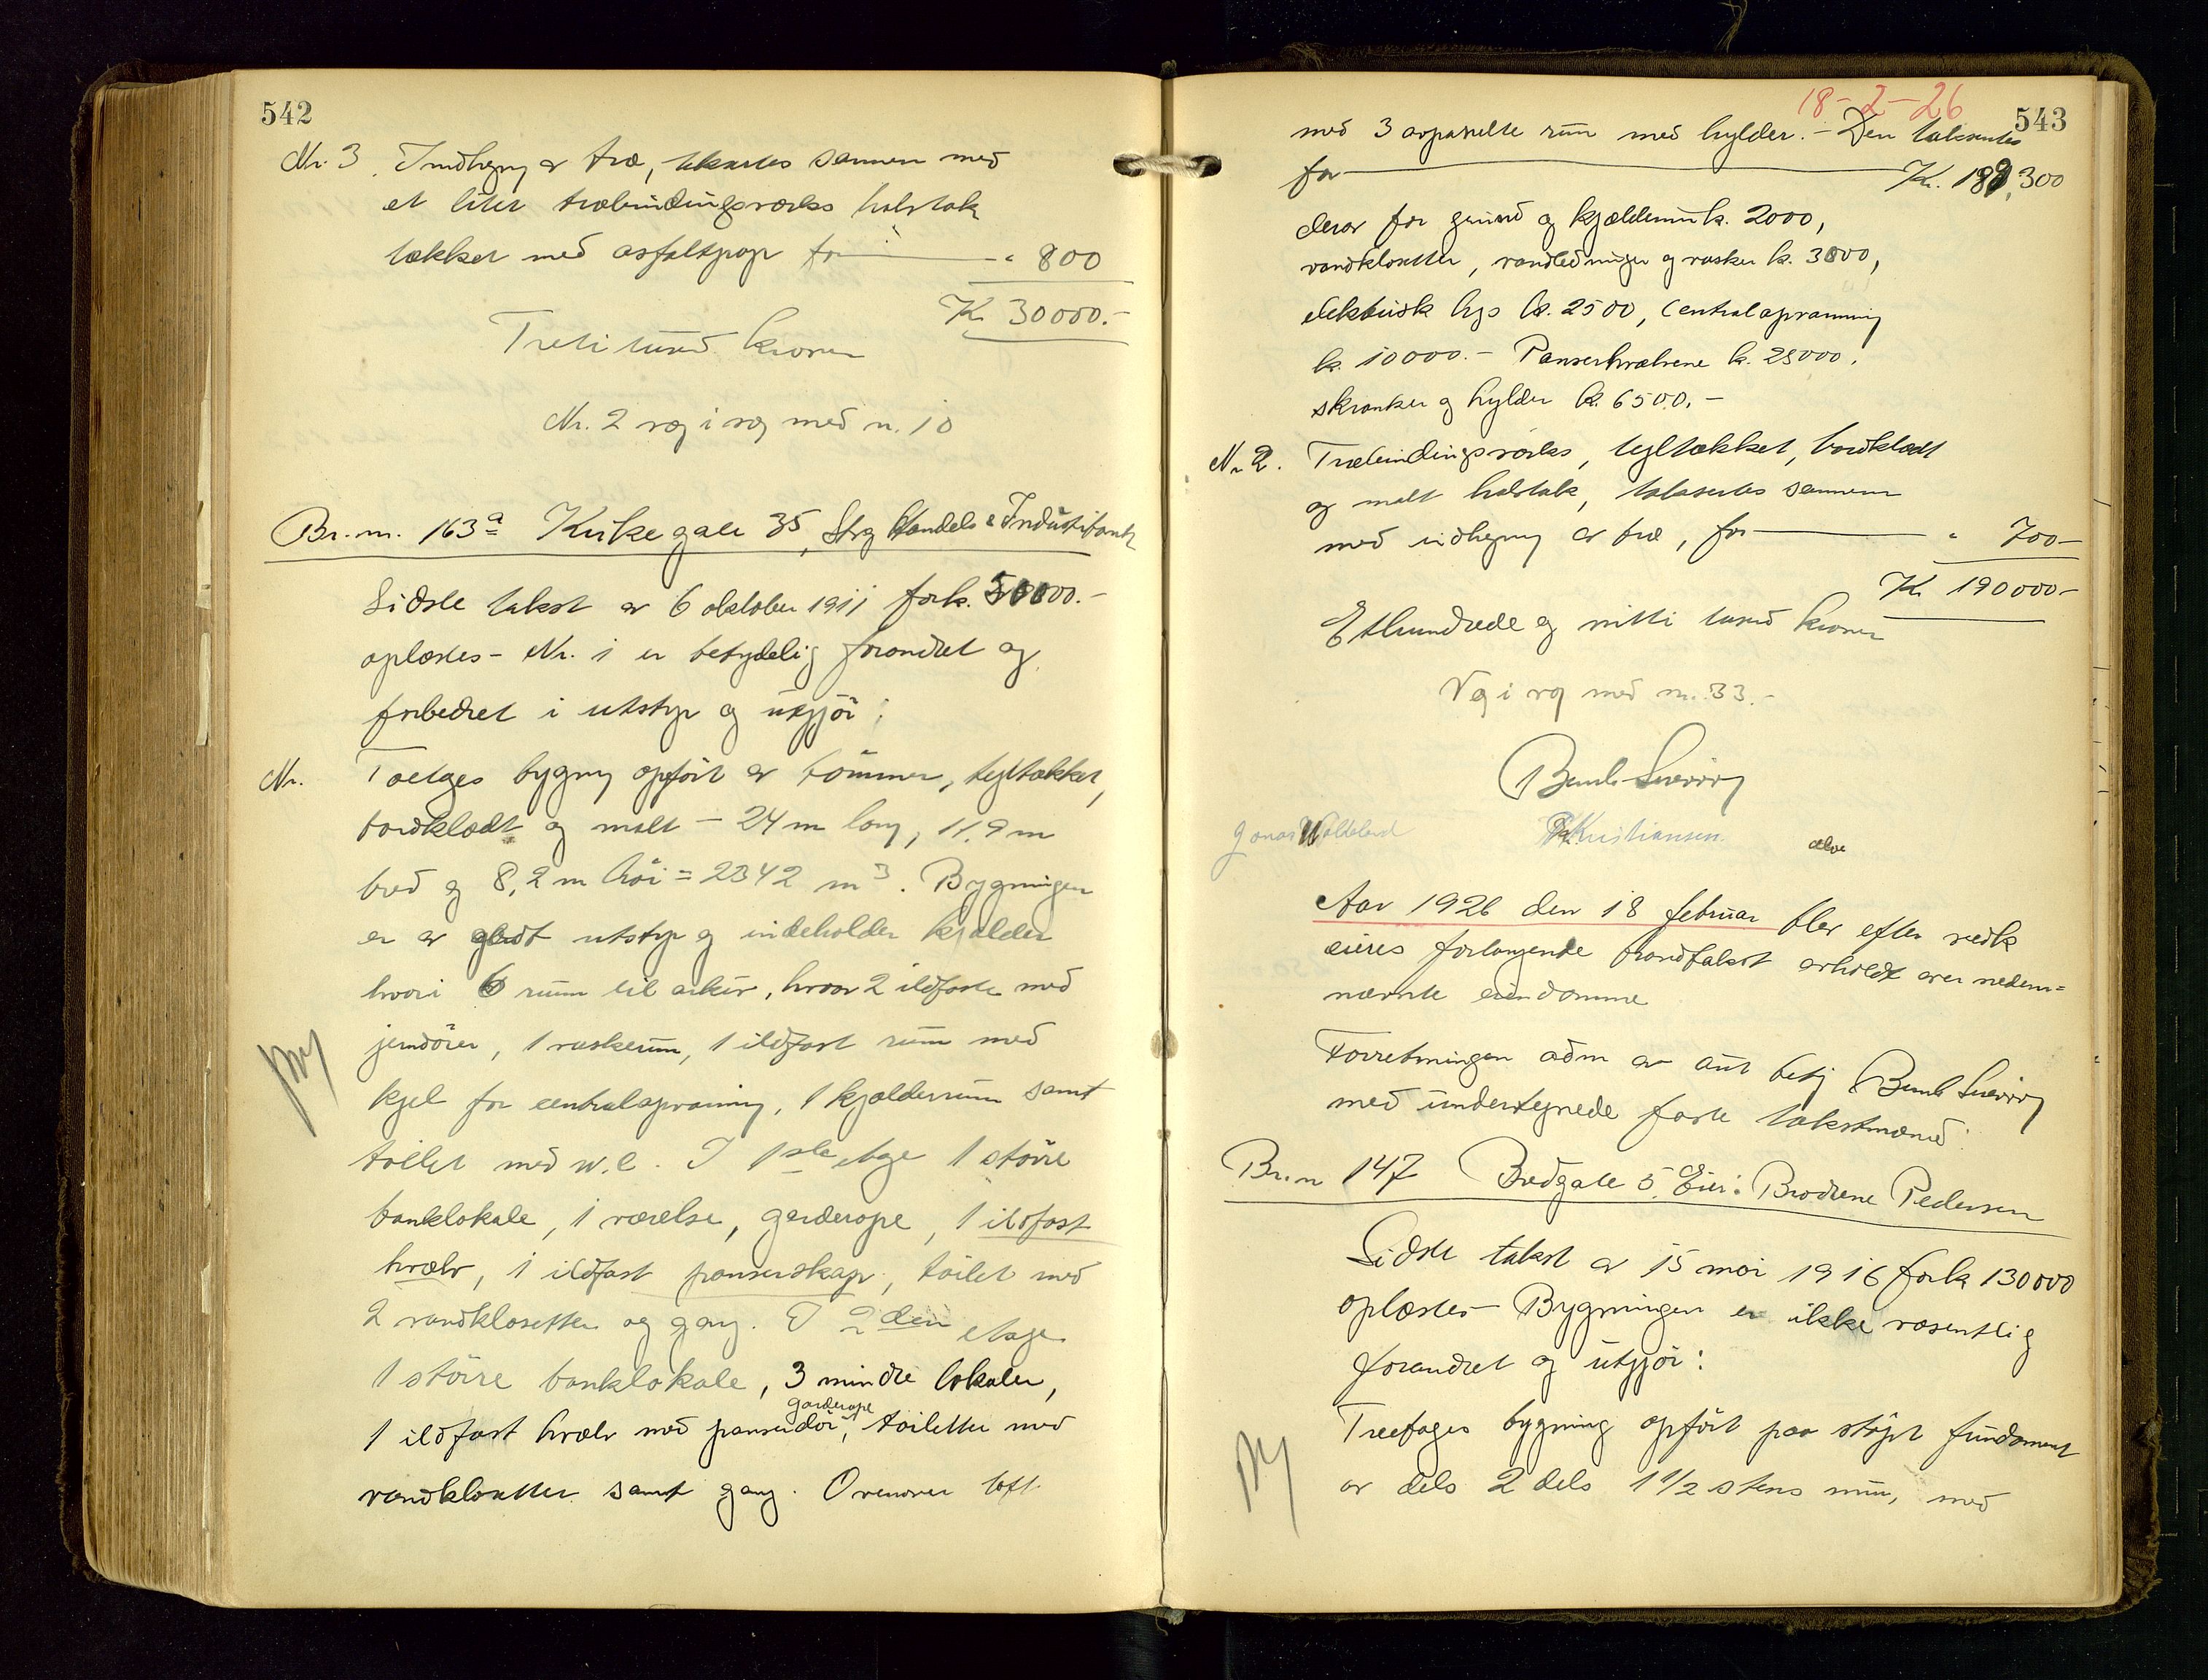 542
Nr. 3. Indhegn av træ, takseres sammen med
et litet træbindingsværks halvtak
tækket med asfaltpap for " 800
K. 30000.-
Treti tusend kroner
Nr. 2 væg i væg med n. 10
Br. nr. 163a Kirkegate 35, Stvg Handels & Industribank
Sidste takst av 6 oktober 1911 for k. 50000.-
oplæstes - Nr. 1 er betydelig forandret og
forbedret i utstyr og utgjör:
Nr. Toetages bygning opfört av tömmer, tegltækket,
bordklædt og malt - 24 m lang, 11.9 m
bred og 8,2 m höi = 2342 m3. Bygningen
er av godt utstyr og indeholder kjælder
hvori 6 rum til arkiv, hvorav 2 ildfaste med
jerndörer, 1 vaskerum, 1 ildfast rum med
kjel for centralopvarming, 1 kjælderrum samt
toilet med w.c. I 1ste etage 1 större
banklokale, 1 værelse, garderope, 1 ildfast
hvælv, 1 ildfast panserskap, toilet med
2 vandklosetter og gang. I 2den etage
1 större banklokale, 3 mindre lokaler,
garderope
1 ildfast hvælv med panserdör, toiletter med
vandklosetter samt gang. Ovenover loft
18-2-26
543
med 3 avpanelte rum med hylder. - Den takseres
for K. 189,300
derav for grund og kjælderrum k. 2000,
vandklosetter, vandledninger og vasker k. 3800,
elektrisk lys k. 2500, centralopvarming
k. 10000.- Panserhvælvene k. 25000,
skranker og hylder k. 6500.-
Nr 2. Træbindingsværks, tegltækket, bordklædt
og malt halvtak, takseres sammen
med indhegn av træ, for " 700-
K. 190000-
Ethundrede og nitti tusend kroner
Væg i væg med nr. 33.-
Bernh Sverdrup
Jonas Watteland Kristiansen
Aar 1926 den 18 februar blev efter vedk
eieres forlangende brandtakst avholdt over neden=
nævnte eiendomme
Forretningen adm av aut betj Bernh Sverdrup
med undertegnede faste takstmænd
Br. n 147 Bredgate 5. Eier: Brödrene Pedersen
Sidste takst av 15 mai 1916 for k 130000
oplæstes - Bygningen er ikke væsentlig
forandret og utgjör:
Treetages bygning opfört paa stöpt fundament
av dels 2 dels 1 1/2 stens mur, med